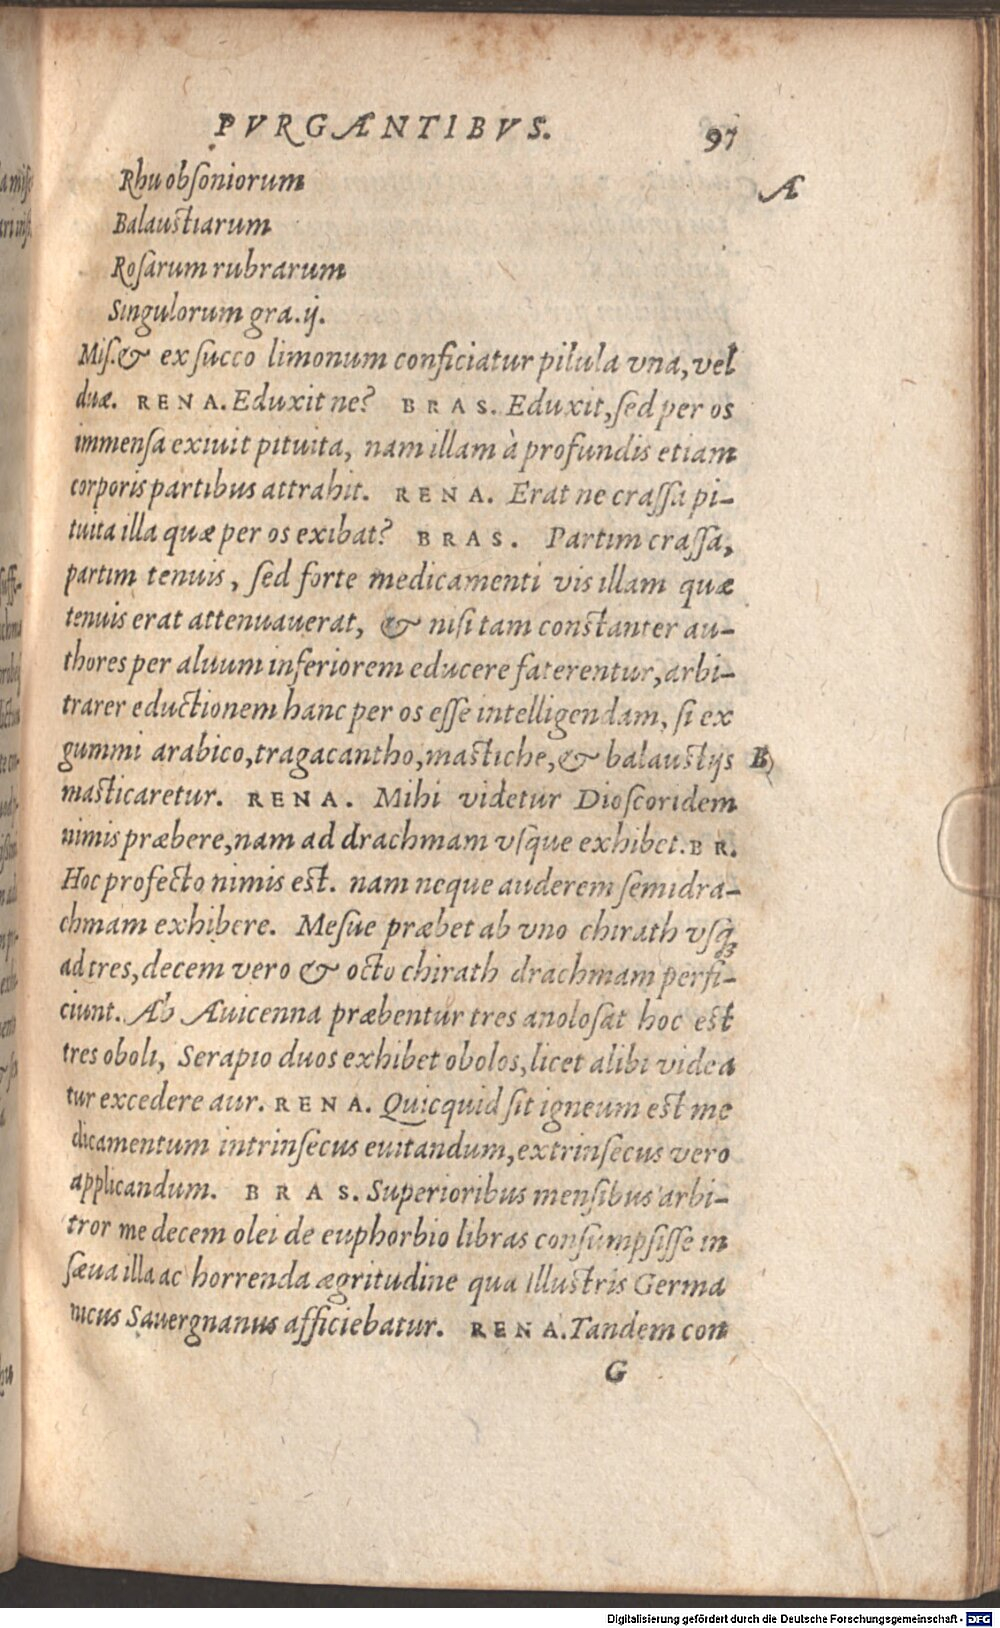 PVRGANTIBVS. 97
Rhu obsoniorum A
Balaustiarum
Rosarum rubrarum
Singulorum gra.ij.
Mis.& ex succo limonum conficiatur pilula vna, vel
duæ. RENA. Eduxit ne? BRAS. Eduxit, sed per os
immensa exiuit pituita, nam illam à profundis etiam
corporis partibus attrahit. RENA. Erat ne crassa pi-
tuita illa quæ per os exibat? BRAS. Partim crassa,
partim tenuis, sed forte medicamenti vis illam quæ
tenuis erat attenuauerat, & nisi tam constanter au-
thores per aluum inferiorem educere faterentur, arbi-
trarer eductionem hanc per os esse intelligendam, si ex
gummi arabico, tragacantho, mastiche, & balaustijs B
masticaretur. RENA. Mihi videtur Dioscoridem
nimis præbere, nam ad drachmam vsque exhibet. BR.
Hoc profecto nimis est. nam neque auderem semidra-
chmam exhibere. Mesue præbet ab vno chirath vsq;
ad tres, decem vero & octo chirath drachmam perfi-
ciunt. Ab Auicenna præbentur tres anolosat hoc est
tres oboli, Serapio duos exhibet obolos, licet alibi videa
tur excedere aur. RENA. Quicquid sit igneum est me
dicamentum intrinsecus euitandum, extrinsecus vero
applicandum. BRAS. Superioribus mensibus arbi-
tror me decem olei de euphorbio libras consumpsisse in
sæua illa ac horrenda ægritudine qua Illustris Germa
nicus Sauergnanus afficiebatur. RENA. Tandem con
G
Digitalisierung gefördert durch die Deutsche Forschungsgemeinschaft - DFG